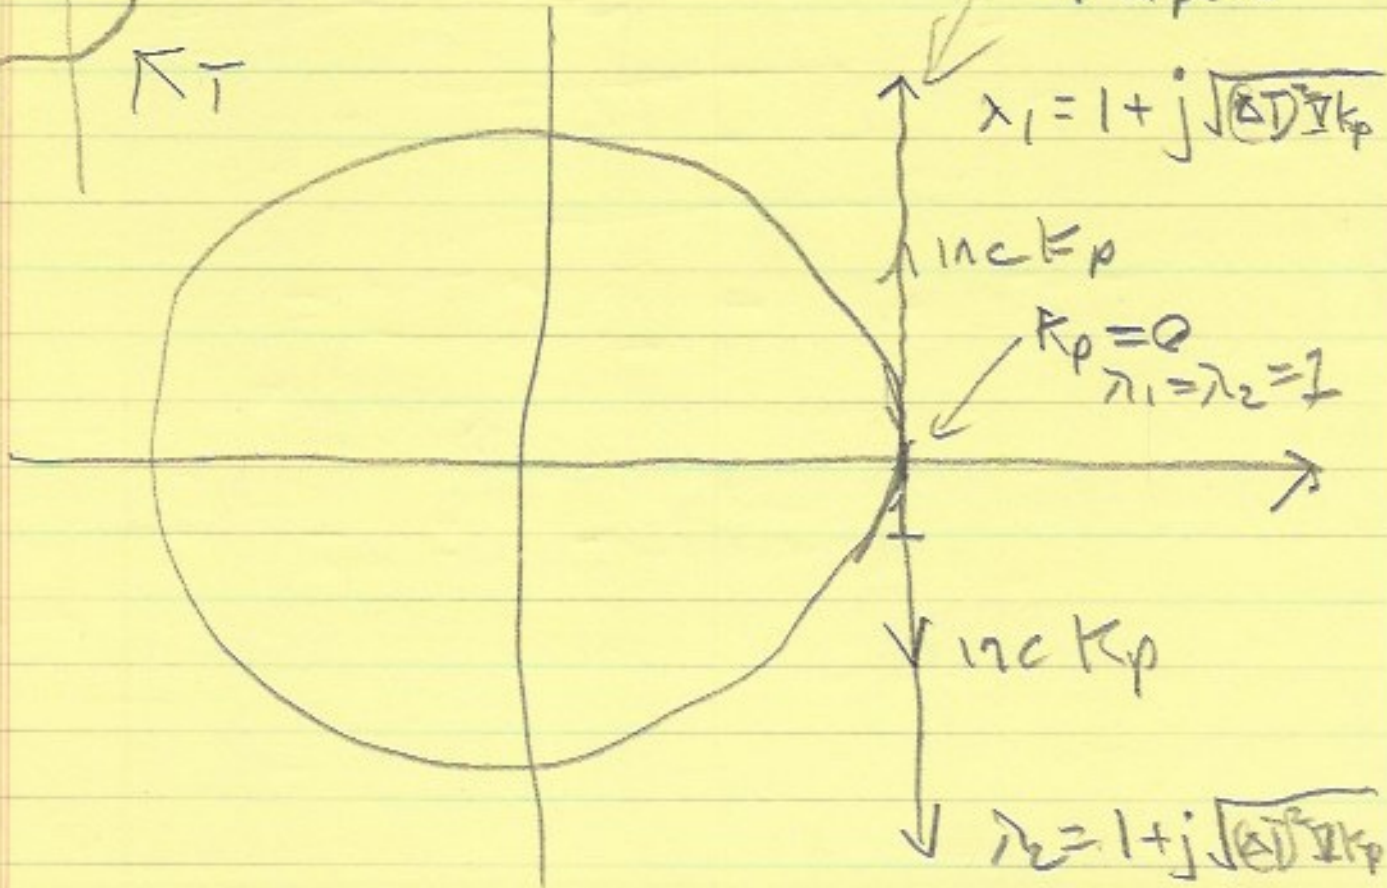 K_T
λ₁ = 1 + j√(ΔT)²V K_p
inc K_p
K_p = 0
λ₁ = λ₂ = 1
1
inc K_p
λ₂ = 1 + j√(ΔT)²V K_p